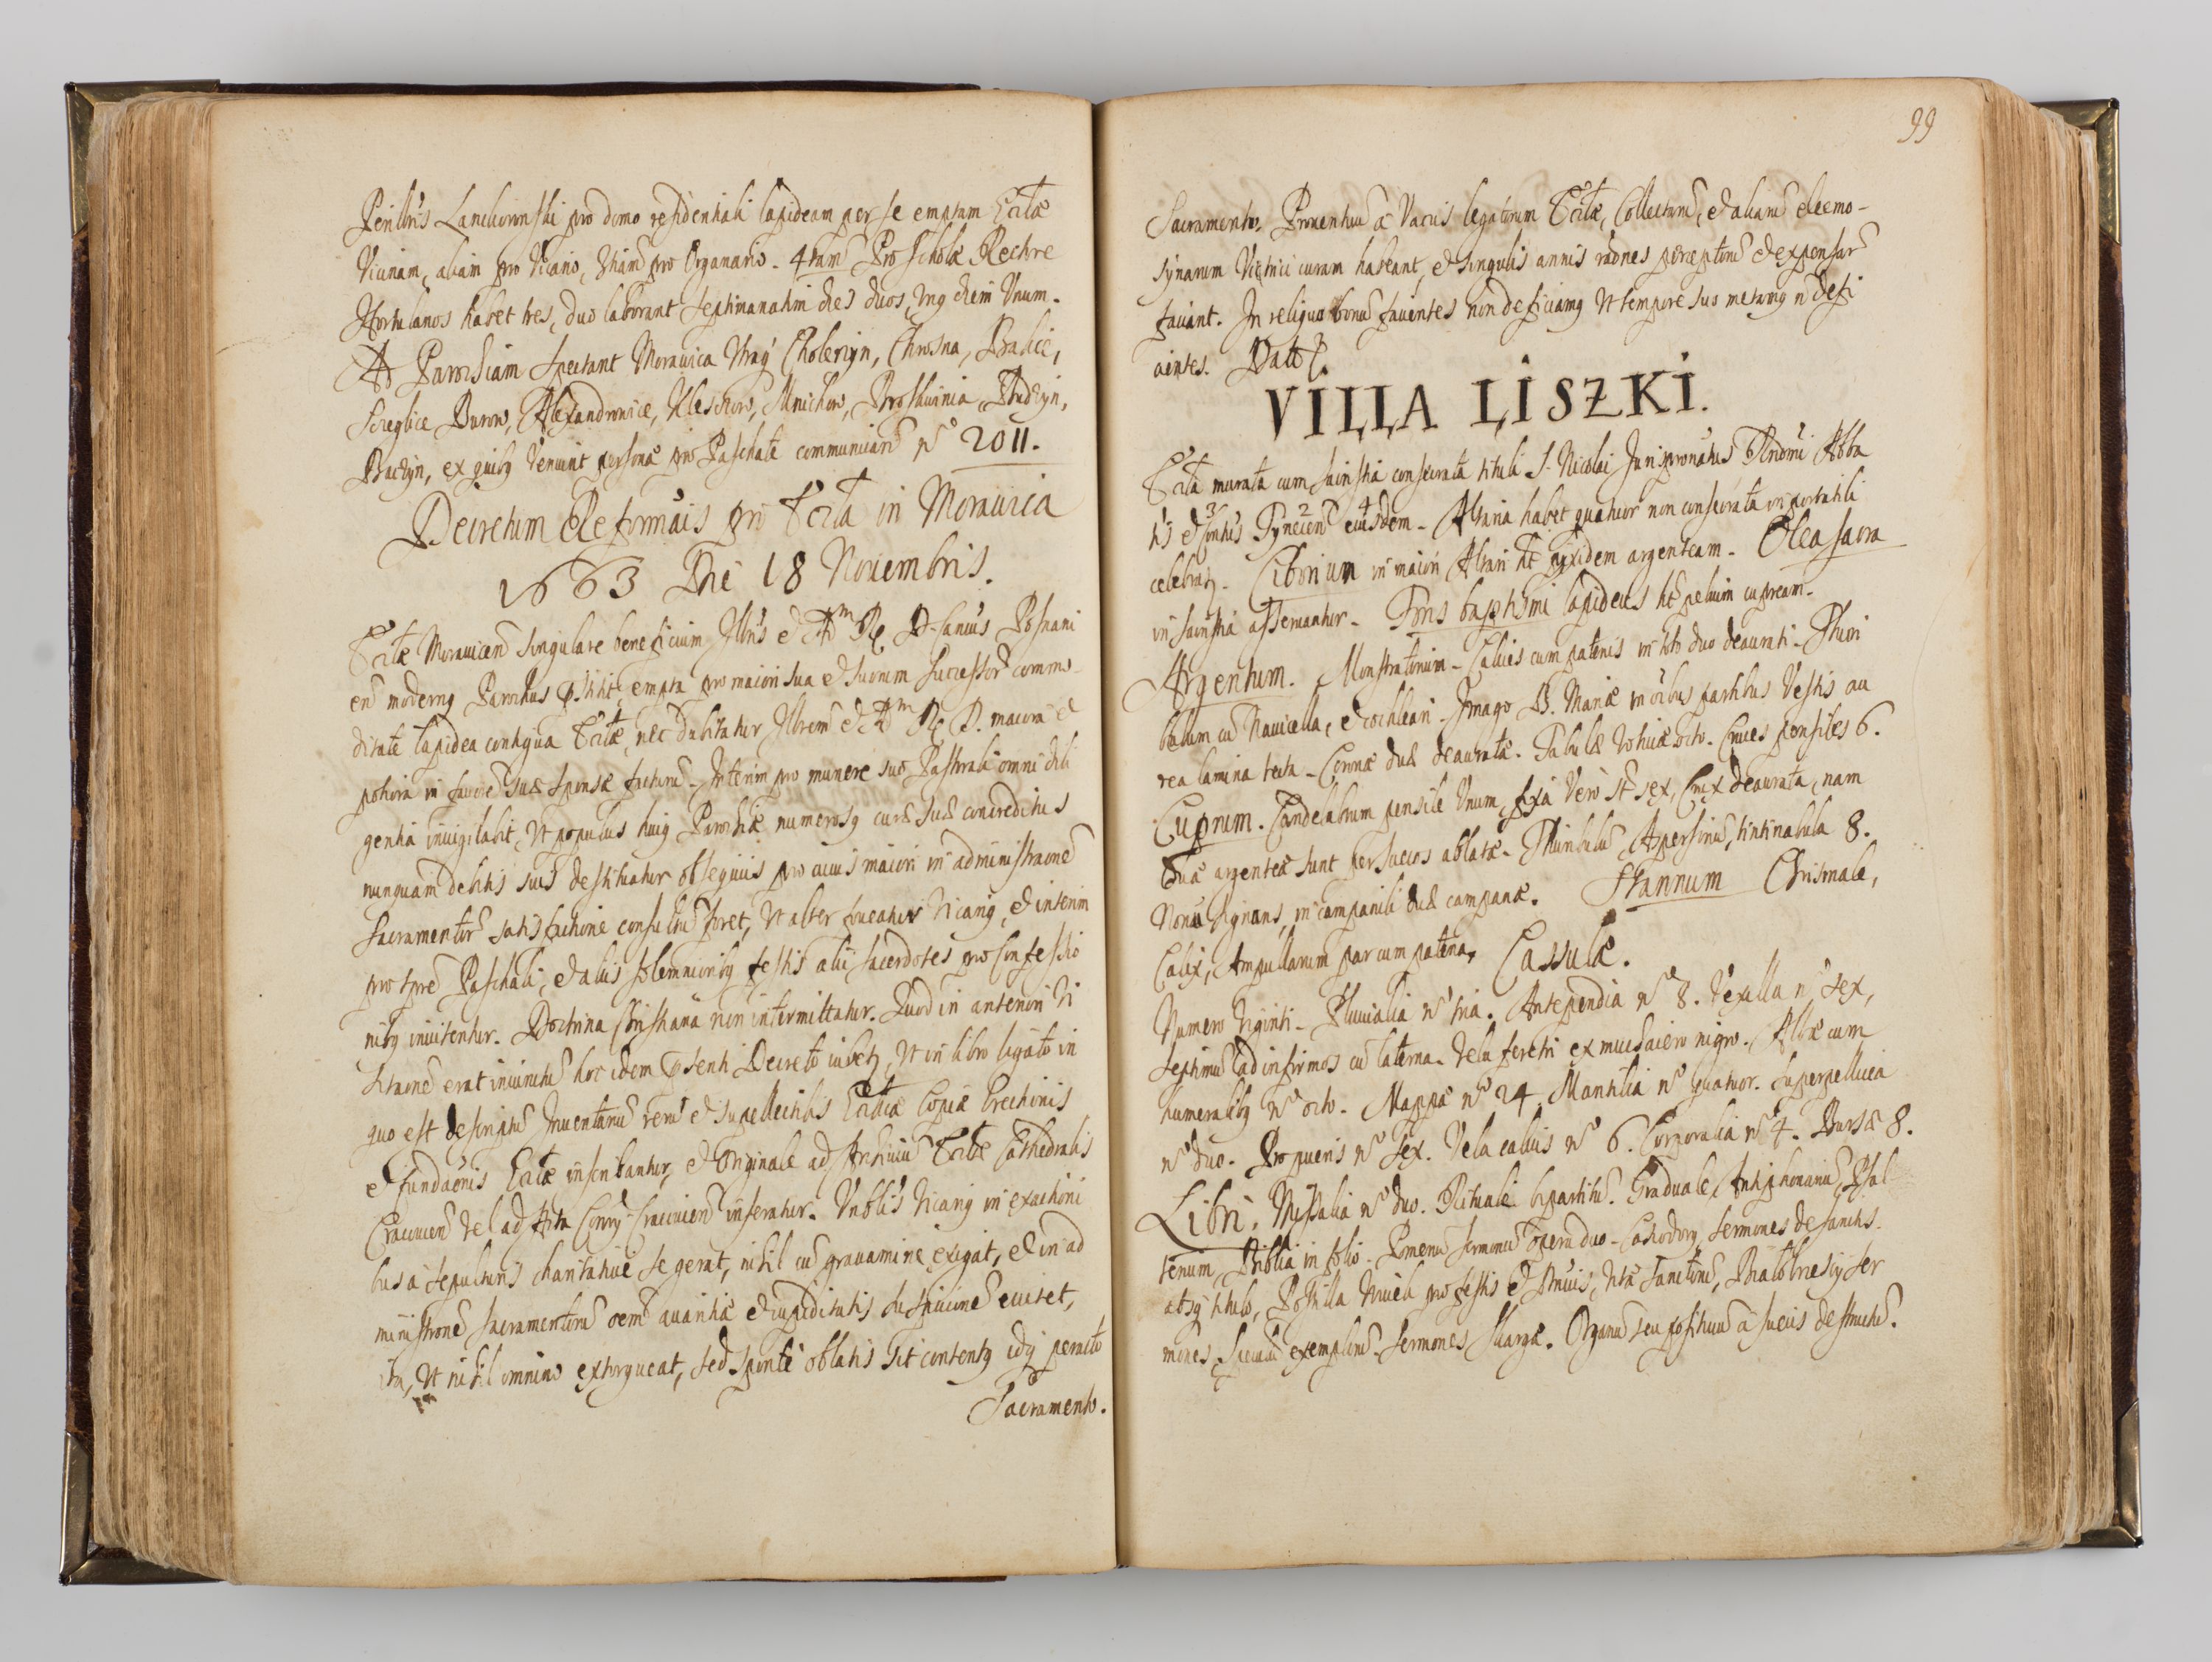 Penibris Lanckorownski pro domo residentiali lapideam per se emptam Ecltae
Vicinam, aliam pro Vicario, 3tiam pro Organario. 4tam Pro Scholae Rectore
Hortulanos habet tres, duo laborant septimanatim dies duos, unq diem Unum.
Ad Parochiam spectant Morawica Utraq Cholerzyn, Chrosna, Baliče,
Sciegłice Burow, Alexandrowice, Kleszczow, Mnichow, Brosłwinia, Budzyn,
Baczyn, ex quibq veniunt personae pro Paschate communican̄ No 2011.
Decretum Reformāis pro Eccla in Morawica
1663 Die 18 Nouembris.
Ecltae Morauicen̄ singulare beneficium Illris et Adm R D Posnani
en̄ modernq Parochus pstitit, empta pro maiori sua et suorum successor̄ commo-
ditate lapidea contigua Ecltae, nec dubitatur Illrem et Adm R D. maiora et
potiora in favore suae sponsae facturū. Interim pro munere suo Pastorali omni dili
gentia invigilabit, Ut populus huiq Parochiae numerosq curae suae concreditus
nunquam debitis suis destituatur obsequiis pro cuius maiori in administraōne
Sacramentor̄ satisfactione consultū foret, Ut alter foveatur Vicariq, et interim
pro tpre Paschali, et aliis solemniorib̄q festis alii sacerdotes pro Confessio
nibq invitentur. Doctrina Christiana non intermittatur. Quod in anteriori Vi
sitaōne erat iniunctū hoc idem psenti Decreto iubetq, Ut in libro ligato in
quo est descriptū Inventariū rerū et supellectilis Ecltae Copiae Erectionis
et fundaōnis Ecltae inscribantur, et Originale ad Archivū Ecltae Cathedralis
Cracovien̄ vel ad Acta Consrij Cracovien̄ inferatur. Vnblis Vicariq in exactioni
bus a sepulturis charitativē se gerat, nihil cū gravamine exigat, et in ad
ministrōne Sacramentorū oem̄ avaritiae et cupiditatis suspicionē evitet,
ita, Ut nihil omnino extorqueat, sed sponte oblatis sit contentq idq peracto
Sacramento.
99
Sacramento. Proventuū a Varijs legatorum Ecltae, Collectarū, et aliarū eleemo-
synarum Vitrici curam habeant, et singulis annis rōnes perceptorū et expensar̄
faciant. In reliquo bonū facientes non deficiamq Ut tempore suo metamq n̄ defi
cientes. Datt.
VILLA LISZKI.
Eccla murata cum sacristia consecrata tituli S. Nicolai Jurispronātus Plndmi Abba
tis et Contus Tynecien̄ eiusdem. Altaria habet quatuor non consecrata in portatili
3 2 4
celebratq. Ciborium in maiori Altari ht pyxidem argenteam. Olea sacra
in sacristia asservantur. Fons baptismi lapideus ht pelvim cupream.
Argentum. Monstratorium. Calices cum patenis in toto duo deaurati. Thuri
bulum cū Navicella, et cochleari. Imago B. Mariae in oibus partibus Vestis au
rea lamina tecta. Coronae duae deauratae. Tabulae Votivae octo. Cruces pensiles 6.
Cuprum. Candelabrum pensile Unum, fixa Vero st sex, Crux deaurata, nam
duae argenteae sunt per Suecos ablatae. Thuribulū, Aspersoriū, tintinabula 8.
Nonū signans, in campanili duae campanae. Stannum Chrismale,
Calix, Ampullarum par cum patena. Cassulae.
Numero Viginti. Pluvialia No tria. Antependia No 8. Vexilla No sex,
septimū ad infirmos cū laterna. Vela feretri ex mucsaiero nigro. Albae cum
humeralibq No octo. Mappae No 24. Mantilia No quatuor. Superpellicea
No duo. Pro pueris No sex. Vela calicis No 6. Corporalia No 4. Bursae 8.
Libri. Missalia No duo. Rituale bipartitū. Graduale, Antiphonariū, Psal
terium, Biblia in folio. Pomeriū sermonū opera duo. Cashodorq, sermones de sanctis.
absq titulo, Postilla Wuiek pro festis et Dmicis, Vita sanctorū, Białobrzesij ser
mones, Speculū exemplorū. Sermones Skargae. Organū seu positivū a Suecis destructū.